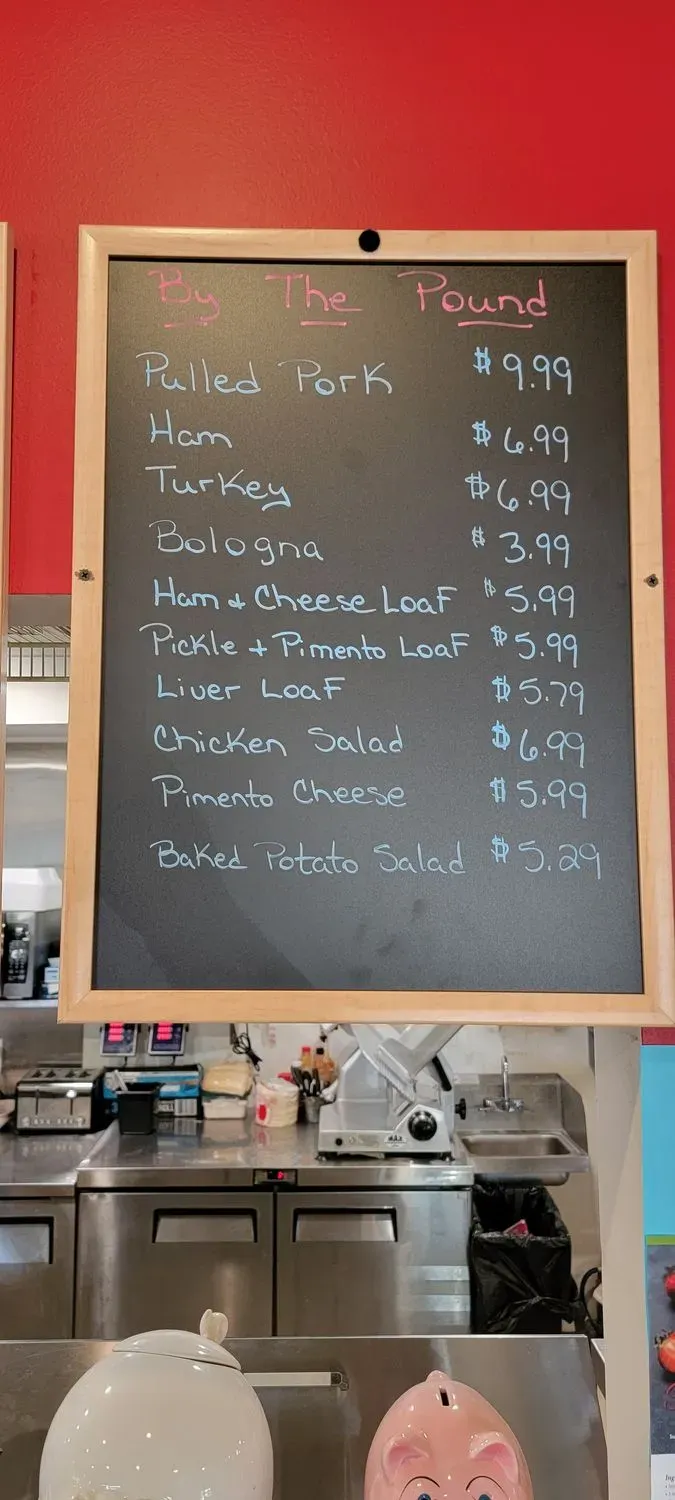 By The Pound
Pulled Pork $9.99
Ham $6.99
Turkey $6.99
Bologna $3.99
Ham + Cheese Loaf $5.99
Pickle + Pimento Loaf $5.99
Liver Loaf $5.79
Chicken Salad $6.99
Pimento Cheese $5.99
Baked Potato Salad $5.29